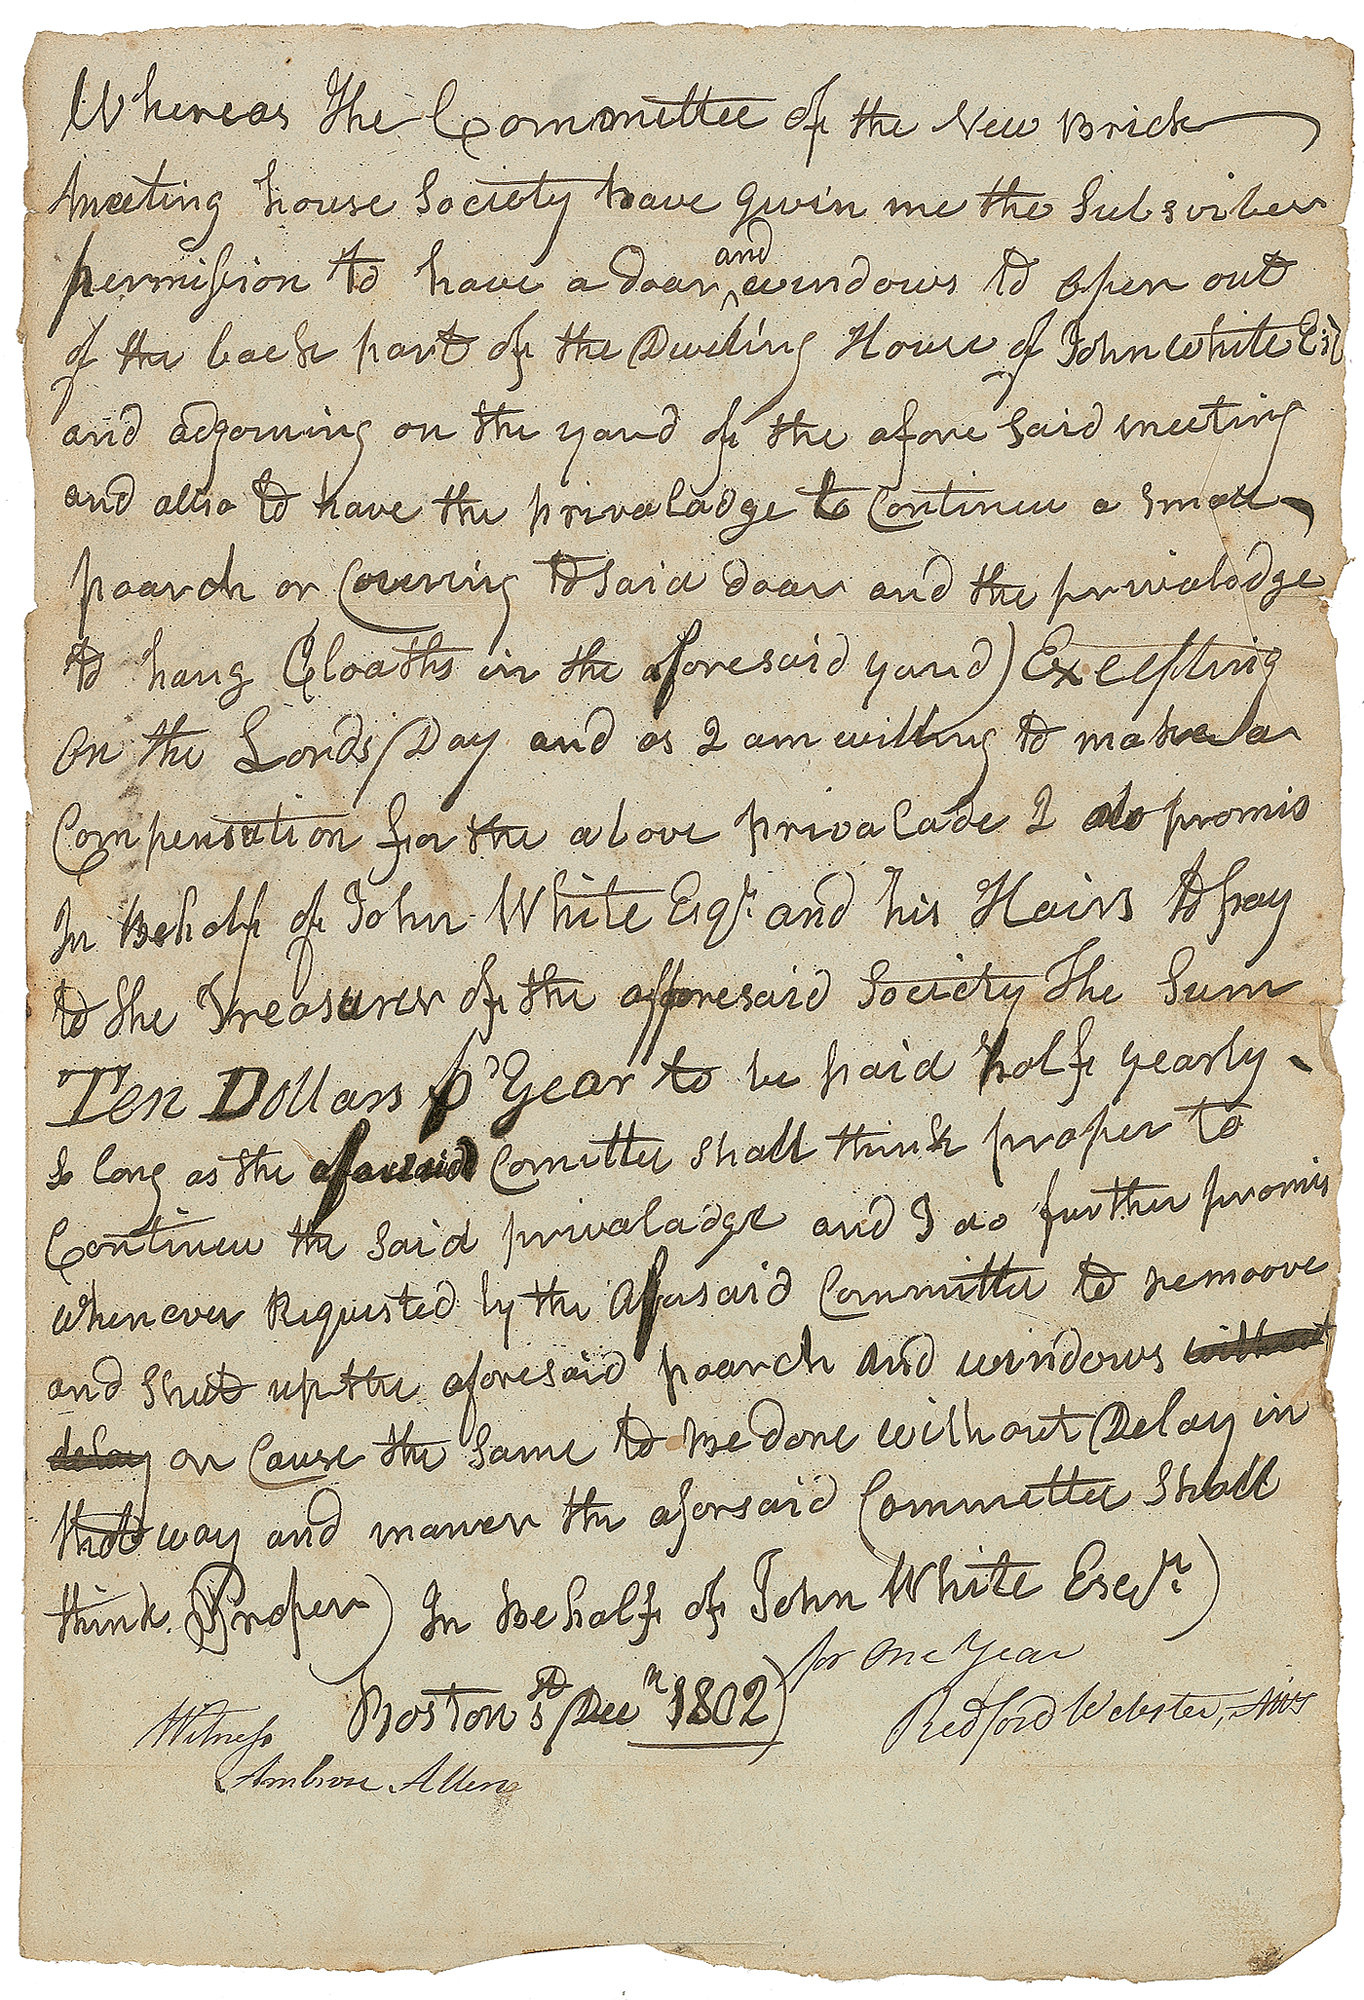 Whereas The Committee of the New Brick
Meeting house Society have given me the Subscriber
permission to have a doar and windows to open out
of the back part of the Dweling House of John White Esq
and adgoining on the yard of the afore Said meeting
and allso to have the privaladge to Continue a Small
poarch or Covering to Said doar and the privaladge
to hang Cloaths in the aforesaid yard) Excepting
on the Lords Day and as I am willing to make a
Compensation for the above privalade I do promis
In Behalf of John White Esqr. and his Hairs to pay
to the Treasurer of the afforesaid Society The Sum
Ten Dollars pr Year to be paid half yearly
So long as the aforesaid Comittee shall think proper to
Continue the Said privaladge and I do further promis
Whenever Requested by the Aforsaid Committee to remoove
and Shut up the aforesaid poarch and windows without
delay or Cause the Same to Be done without Delay in
that way and maner the aforsaid Committee Shall
think Proper) In Behalf of John White Esqr.)
for One Year
Boston 5th Decr 1802)
Redford Webster,
Witness
Ambrose Allen